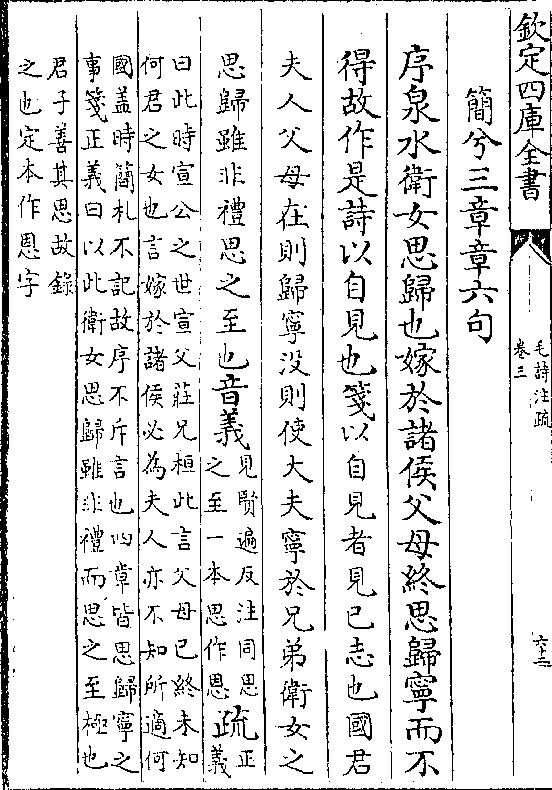 欽定四庫全書
毛詩注疏
卷三
六十二
簡兮三章章六句
序泉水衛女思歸也嫁於諸侯父母終思歸寧而不
得故作是詩以自見也箋以自見者見已志也國君
夫人父母在則歸寧沒則使大夫寧於兄弟衛女之
思歸雖非禮思之至也音義
見賢遍反注同思
之至一本思作恩
疏
正
義
曰此時宣公之世宣父莊兄桓此言父母已終未知
何君之女也言嫁於諸侯必為夫人亦不知所適何
國蓋時簡札不記故序不斥言也四章皆思歸寧之
事箋正義曰以此衛女思歸雖非禮而思之至極也
君子善其思故錄
之也定本作恩字